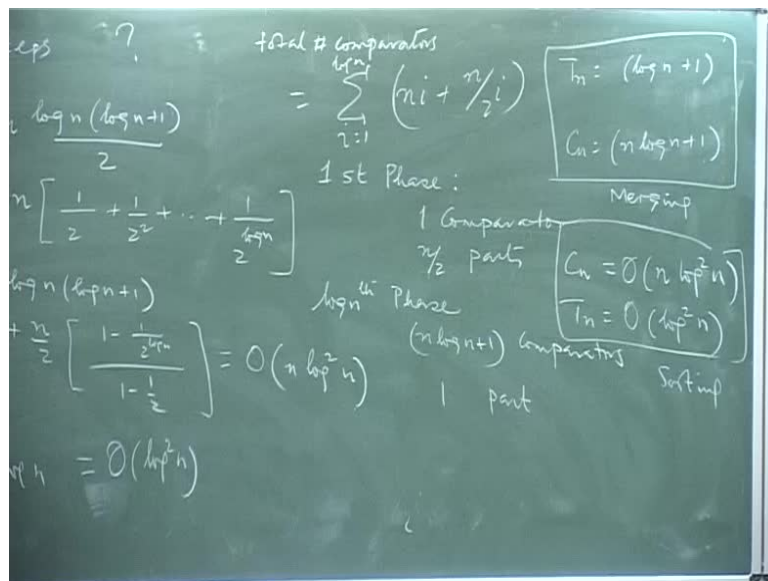 eps ?
log n (log n+1)
2
n [ 1/2 + 1/2² + ... + 1/2^log n ]
log n (log n+1)
+ n/2 [ (1 - 1/2^log n) / (1 - 1/2) ] = O(n log² n)
log n = O(log² n)
total # comparators
= Σ_{i=1}^{log n} (ni + n/2^i)
1st Phase :
1 Comparator
n/2 parts
log nth Phase
(n log n+1) Comparators
1 part
Tn = (log n+1)
Cn = (n log n+1)
Merging
Cn = O(n log² n)
Tn = O(log² n)
Sorting